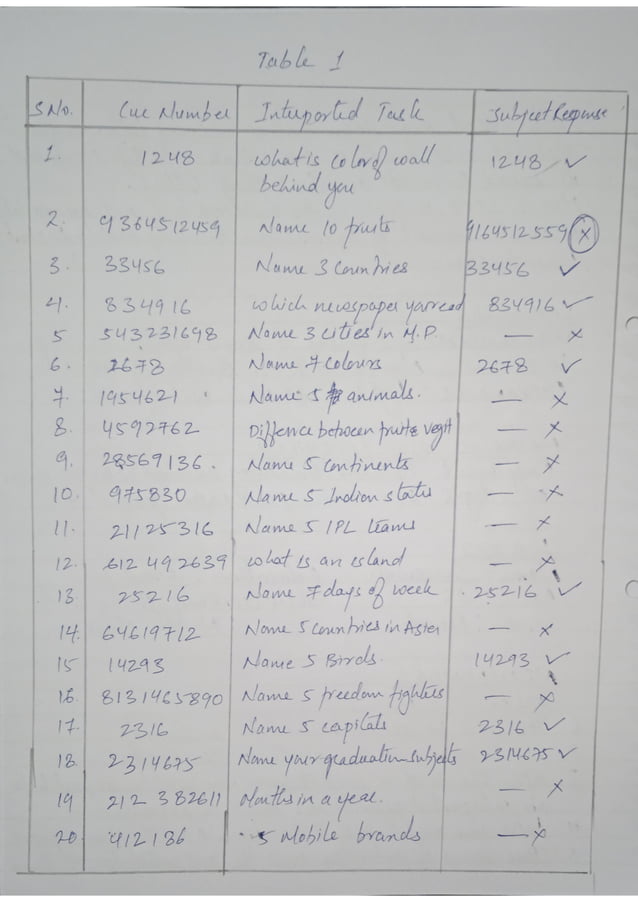 Table 1
S No. Cue Number Interpolated Task Subject Response
1. 1248 what is color of wall 1248 ✓
behind you
2. 9364512459 Name 10 fruits 9164512559 ×
3. 33456 Name 3 Countries 33456 ✓
4. 834916 which newspaper you read 834916 ✓
5 543231698 Name 3 cities in M.P. — ×
6. 2678 Name 7 colours 2678 ✓
7. 1954621 Name 5 animals. — ×
8. 4592762 Diffence between fruit & vegit — ×
9. 28569136. Name 5 Continents — ×
10. 975830 Name 5 Indian states — ×
11. 21125316 Name 5 IPL teams — ×
12. 612492639 what is an island — ×
13 25216 Name 7 days of week 25216 ✓
14. 64619712 Name 5 countries in Asia — ×
15 14293 Name 5 Birds. 14293 ✓
16. 8131465890 Name 5 freedom fighters — ×
17. 2316 Name 5 capitals 2316 ✓
18. 2314675 Name your graduation subjects 2314675 ✓
19 212382611 Months in a year. — ×
20. 412186 5 Mobile brands — ×